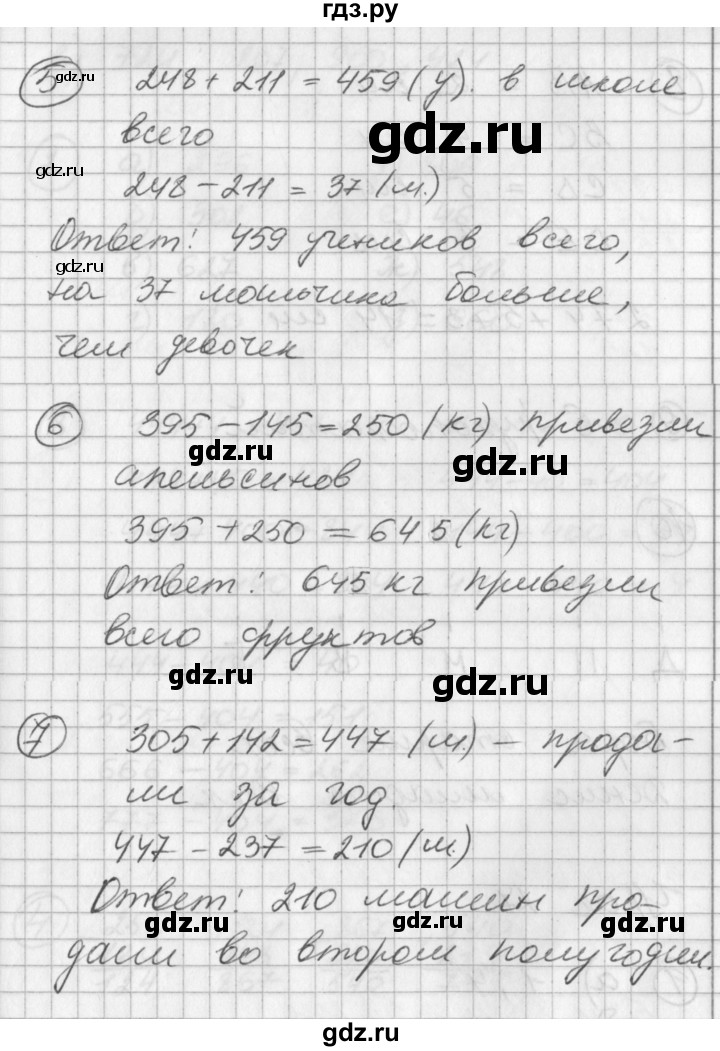 гдз.ру
5 248 + 211 = 459 (у). в школе
gdz.ru
всего
gdz.ru
gdz.ru
248 - 211 = 37 (м.)
Ответ: 459 учеников всего,
gdz.ru
на 37 мальчика больше,
чем девочек
6 395 - 145 = 250 (кг) привезли
gdz.ru
gdz.ru
апельсинов
395 + 250 = 645 (кг)
Ответ: 645 кг привезли
gdz.ru
gdz.ru
всего фруктов
gdz.ru
gdz.ru
7 305 + 142 = 447 (м.) - прода-
ли за год.
447 - 237 = 210 (м.)
Ответ: 210 машин про-
gdz.ru
gdz.ru
дали во втором полугодии.
gdz.ru